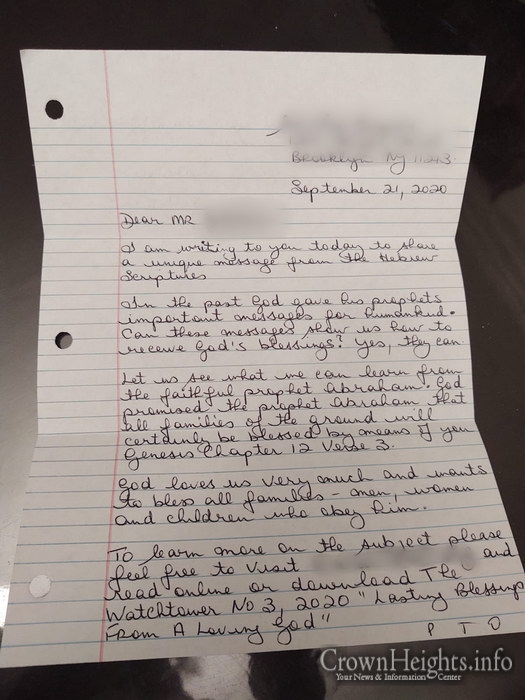 Brooklyn Ny 11243
September 21, 2020
Dear MR
I am writing to you today to share
a unique message from the Hebrew
Scriptures
In the past God gave his prophets
important messages for humankind.
Can these messages show us how to
receive God's blessings? Yes, they can
Let us see what we can learn from
the faithful prophet Abraham. God
promised the prophet Abraham that
all families of the ground will
certainly be blessed by means of you
Genesis Chapter 12 Verse 3.
God loves us very much and wants
to bless all families - men, women
and children who obey him.
To learn more on the subject please
feel free to visit and
Read online or download The
Watchtower No 3, 2020 "Lasting Blessings
From A Loving God"
P T O
CrownHeights.info
Your News & Information Center